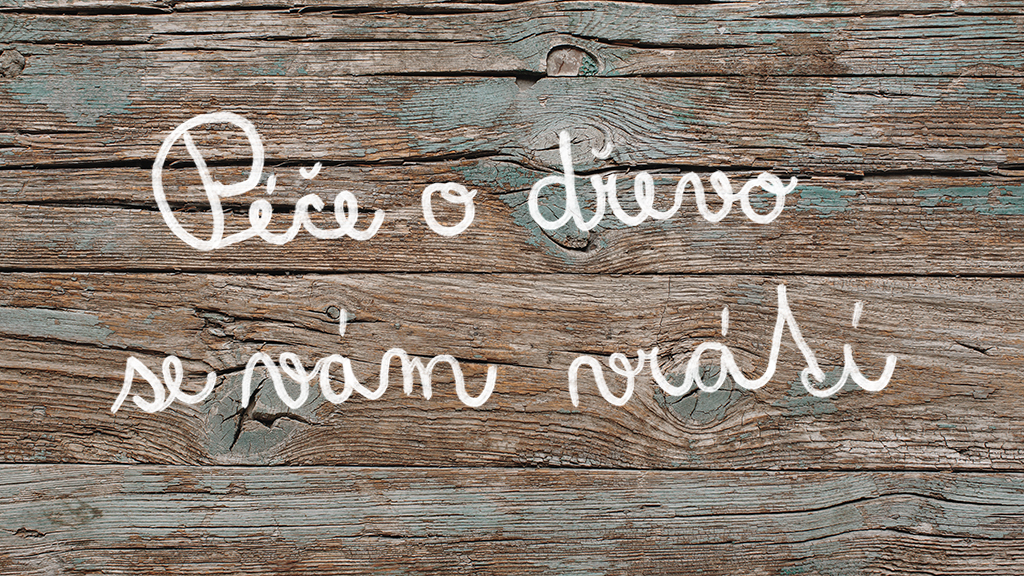 Péče o dřevo
se vám vrátí